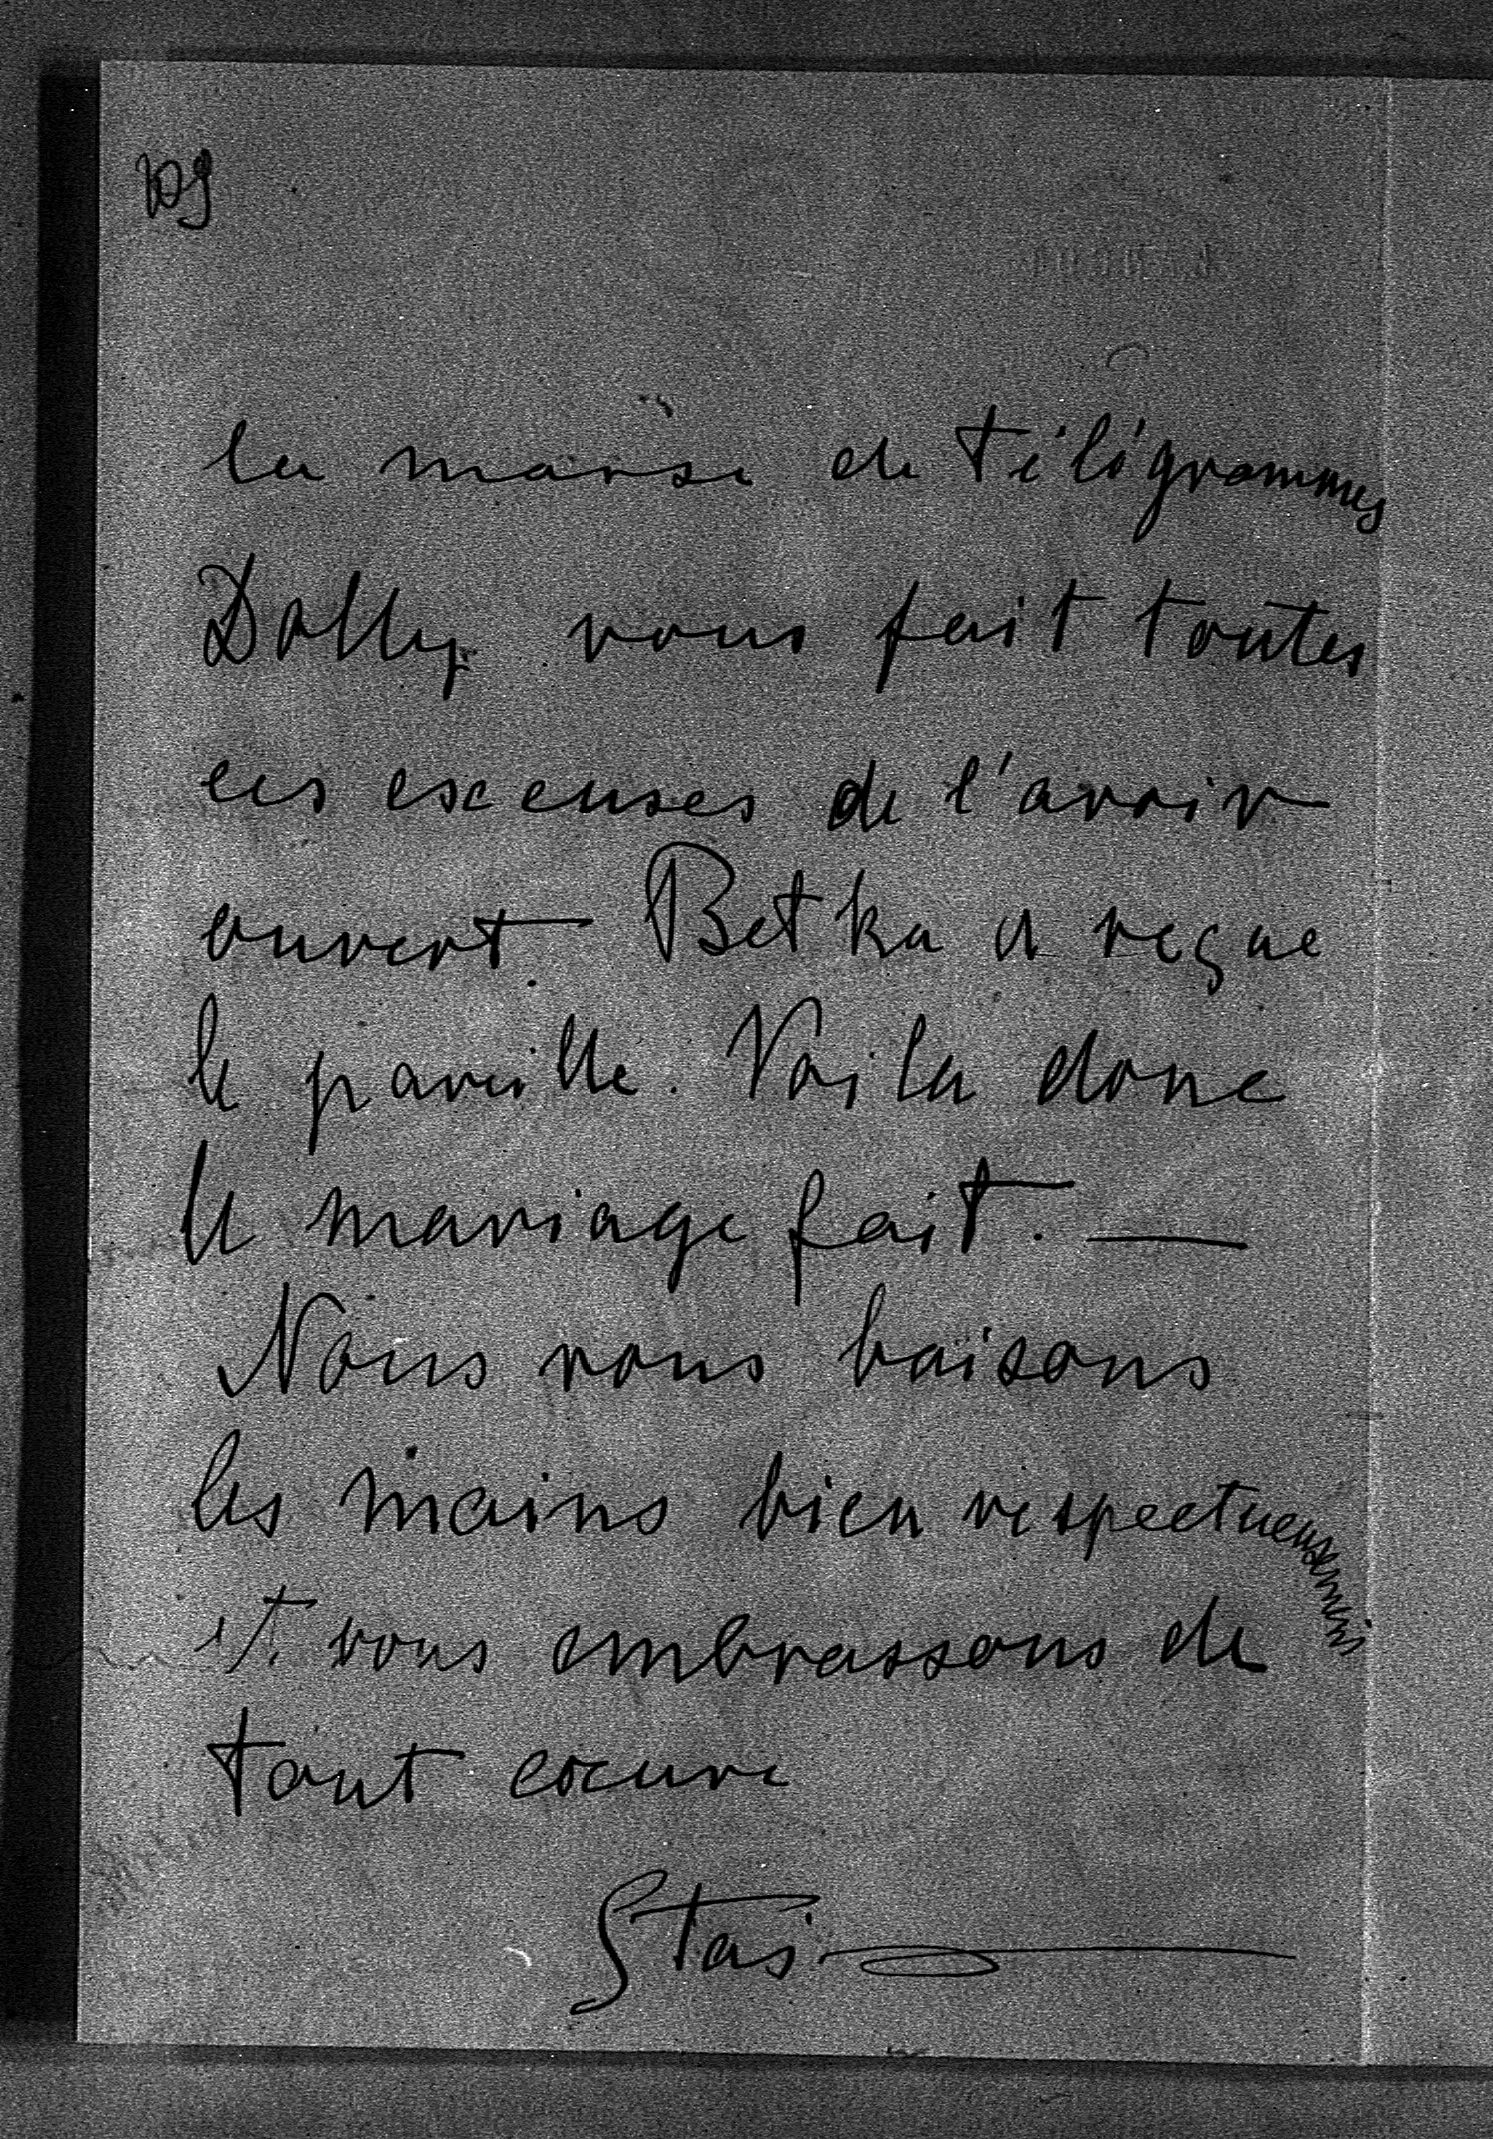 109
la masse de télégrammes
Dolly vous fait toutes
ces excuses de l'avoir
ouvert. Betka a reçue
le pareille. Voila donc
le mariage fait. —
Nous vous baisons
les mains bien respectueusement
et vous embrassons de
tout coeure
Staś